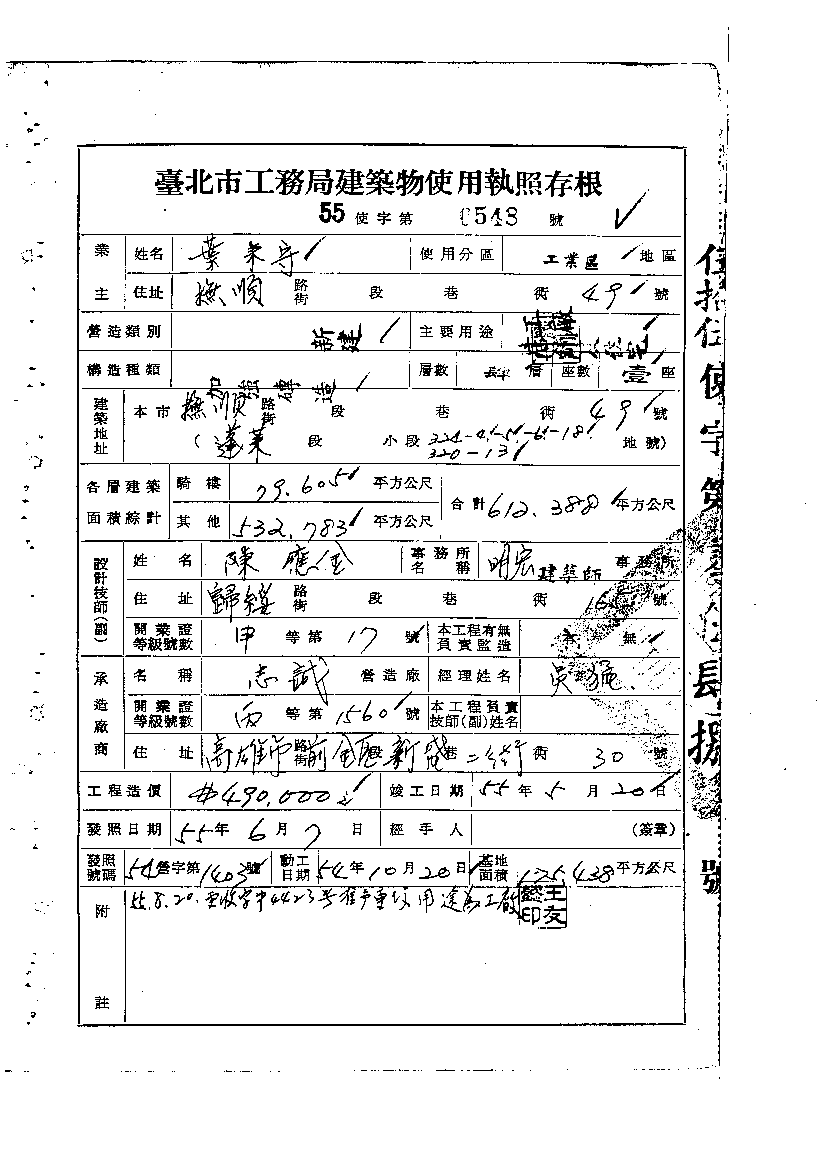 臺北市工務局建築物使用執照存根
55 使字第 0548 號
業主 姓名 葉 守 使用分區 工業區 地區
住址 撫順 路街 段 巷 衖 49 號
營造類別 新建 主要用途
構造種類 加強磚造 層數 肆層 座數 壹座
建築地址 本市 撫順 路街 段 巷 衖 49 號
(蓬萊 段 小段 324-4-5-6-18 地號)
320-13
各層建築面積綜計 騎樓 79.605 平方公尺 合計 612.388 平方公尺
其他 532.783 平方公尺
設計技師(副) 姓名 陳應金 事務所名稱 明宏建築師 事務所
住址 歸綏 路街 段 巷 衖 號
開業證等級號數 甲 等第 17 號 本工程有無負責監造 有 無
承造廠商 名稱 志誠 營造廠 經理姓名 吳
開業證等級號數 丙 等第 1560 號 本工程負責技師(副)姓名
住址 高雄市前金區新盛二街 路街 段 巷 衖 30 號
工程造價 #490,000 竣工日期 55年5月20日
發照日期 55年6月7日 經手人 (簽章)
發照號碼 54營字第1403號 動工日期 54年10月20日 基地面積 175.438 平方公尺
附註 55.8.20. 收字 4423號 用途為工廠 王友懿印
伍拾伍使字第 伍肆捌 號